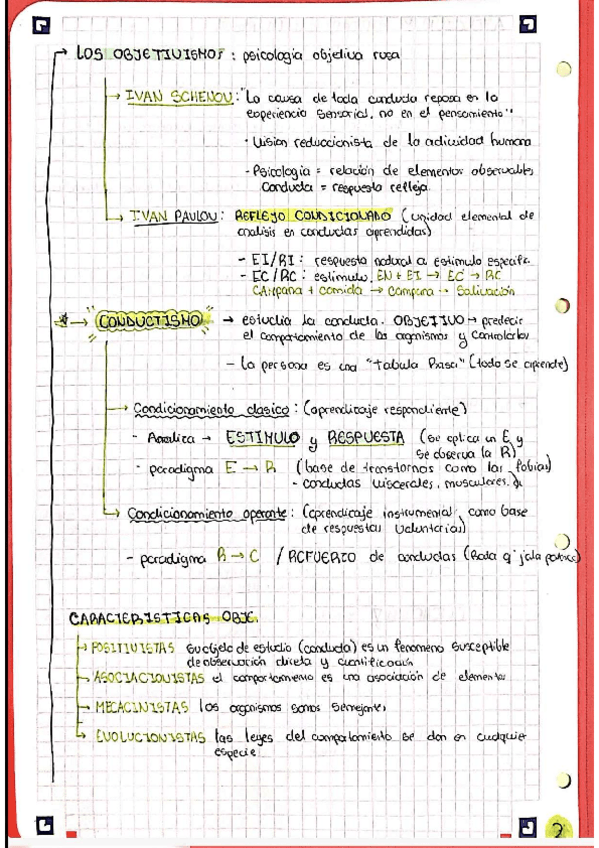 LOS OBJETIVISMOS : psicologia objetiva rusa
IVAN SCHENOV: "La causa de toda conducta reposa en la
experiencia sensorial, no en el pensamiento"
· Vision reduccionista de la actividad humana
· Psicologia = relación de elementos observables
Conducta = respuesta refleja.
IVAN PAVLOV: REFLEJO CONDICIONADO (unidad elemental de
analisis en conductas aprendidas)
- EI/RI : respuesta natural a estimulo especific.
- EC/RC : estimulo. EN + EI → EC → RC
CAmpana + comida → campana -- Salivación
CONDUCTISMO → estudia la conducta. OBJETIVO → predecir
el comportamiento de los organismos y controlarlos
- La persona es una "tabula Rasa" (todo se aprende)
→ Condicionamiento clasico : (aprendizaje respondiente)
- Analiza → ESTIMULO y RESPUESTA (se aplica un E y
se observa la R)
· paradigma E → R (base de transtornos como las fobias)
- conductas viscerales, musculares.
Condicionamiento operante : (aprendizaje instrumental, como base
de respuestas voluntarias)
- paradigma R → C / REFUERZO de conductas (Rata q' jala
CARACTERISTICAS OBJE.
→ POSITIVISTAS su objeto de estudio (conducta) es un fenomeno susceptible
de observación directa y cuantificación
→ ASOCIACIONISTAS el comportamiento es una asociación de elementos
→ MECACINISTAS los organismos somos semejantes
→ EVOLUCIONISTAS las leyes del comportamiento se dan en cualquier
especie
2